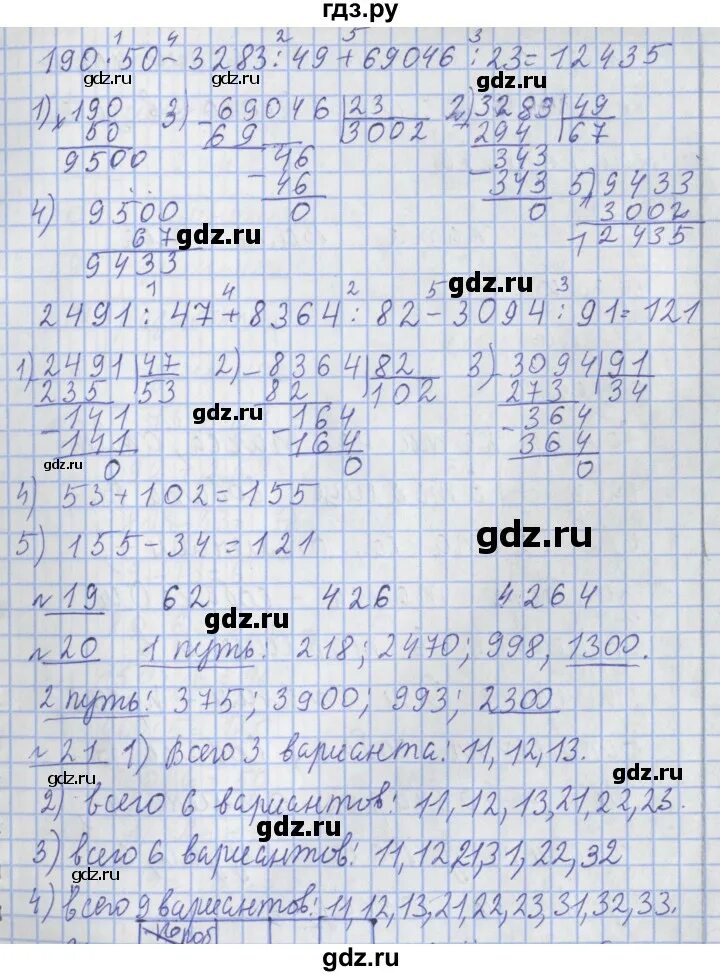 гдз.ру
1 4 2 5 3
190·50-3283:49+69046:23=12435
1) ×190 3) -69046 |23 2) 3283 |49
50 69 3002 294 67
9500 46 -343
-46 -343 5) 9433
4) 9500 0 0 3002
67 12435
9433
1 4 2 5 3
2491:47+8364:82-3094:91=121
1) 2491 |47 2) -8364 |82 3) 3094 |91
235 53 82 102 273 34
-141 -164 -364
141 164 364
0 0 0
4) 53+102=155
5) 155-34=121
№19 62 426 4264
№20 1 путь: 218; 2470; 998, 1300.
2 путь: 375; 3900; 993; 2300
№21 1) Всего 3 варианта: 11,12,13.
2) всего 6 вариантов: 11,12,13,21,22,23.
3) всего 6 вариантов: 11,12,21,31,22,32
4) всего 9 вариантов: 11,12,13,21,22,23,31,32,33.
gdz.ru
gdz.ru
gdz.ru
gdz.ru
gdz.ru
gdz.ru
gdz.ru
gdz.ru
gdz.ru
gdz.ru
gdz.ru
gdz.ru
gdz.ru
gdz.ru